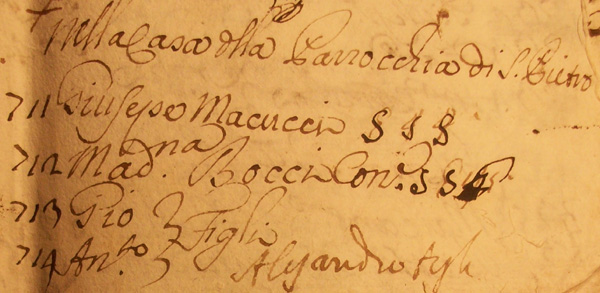 Nella Casa della Parrocchia di S. Pietro
711 Giuseppe Macucci S S S
712 Mad.na Bocci Con. S S
713 Gio
Figli
714 Ant.o Alesandro